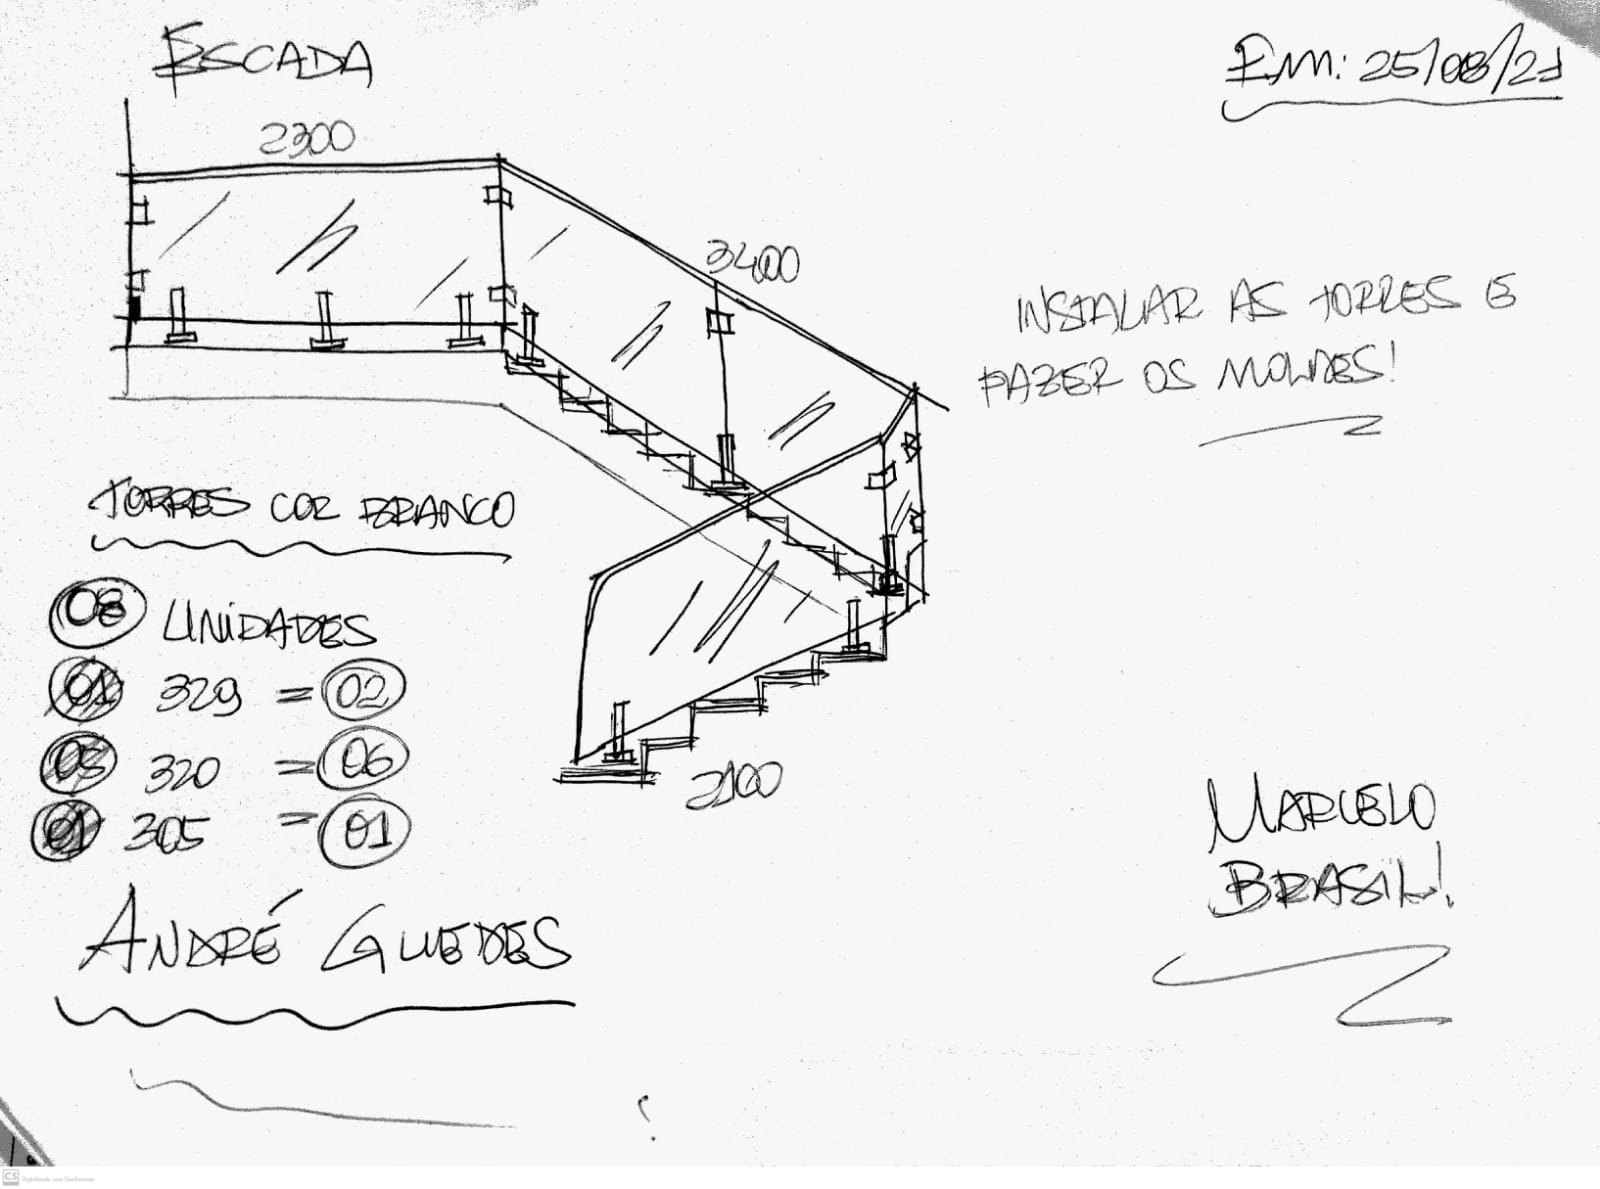 ESCADA
Em: 25/08/21
2300
3400
INSTALAR AS TORRES E
FAZER OS MOLDES!
TORRES COR BRANCO
08 UNIDADES
01 329 = 02
05 320 = 06
01 305 = 01
2100
MARCELO
BRASIL!
ANDRÉ GUEDES
CS Digitalizado com CamScanner